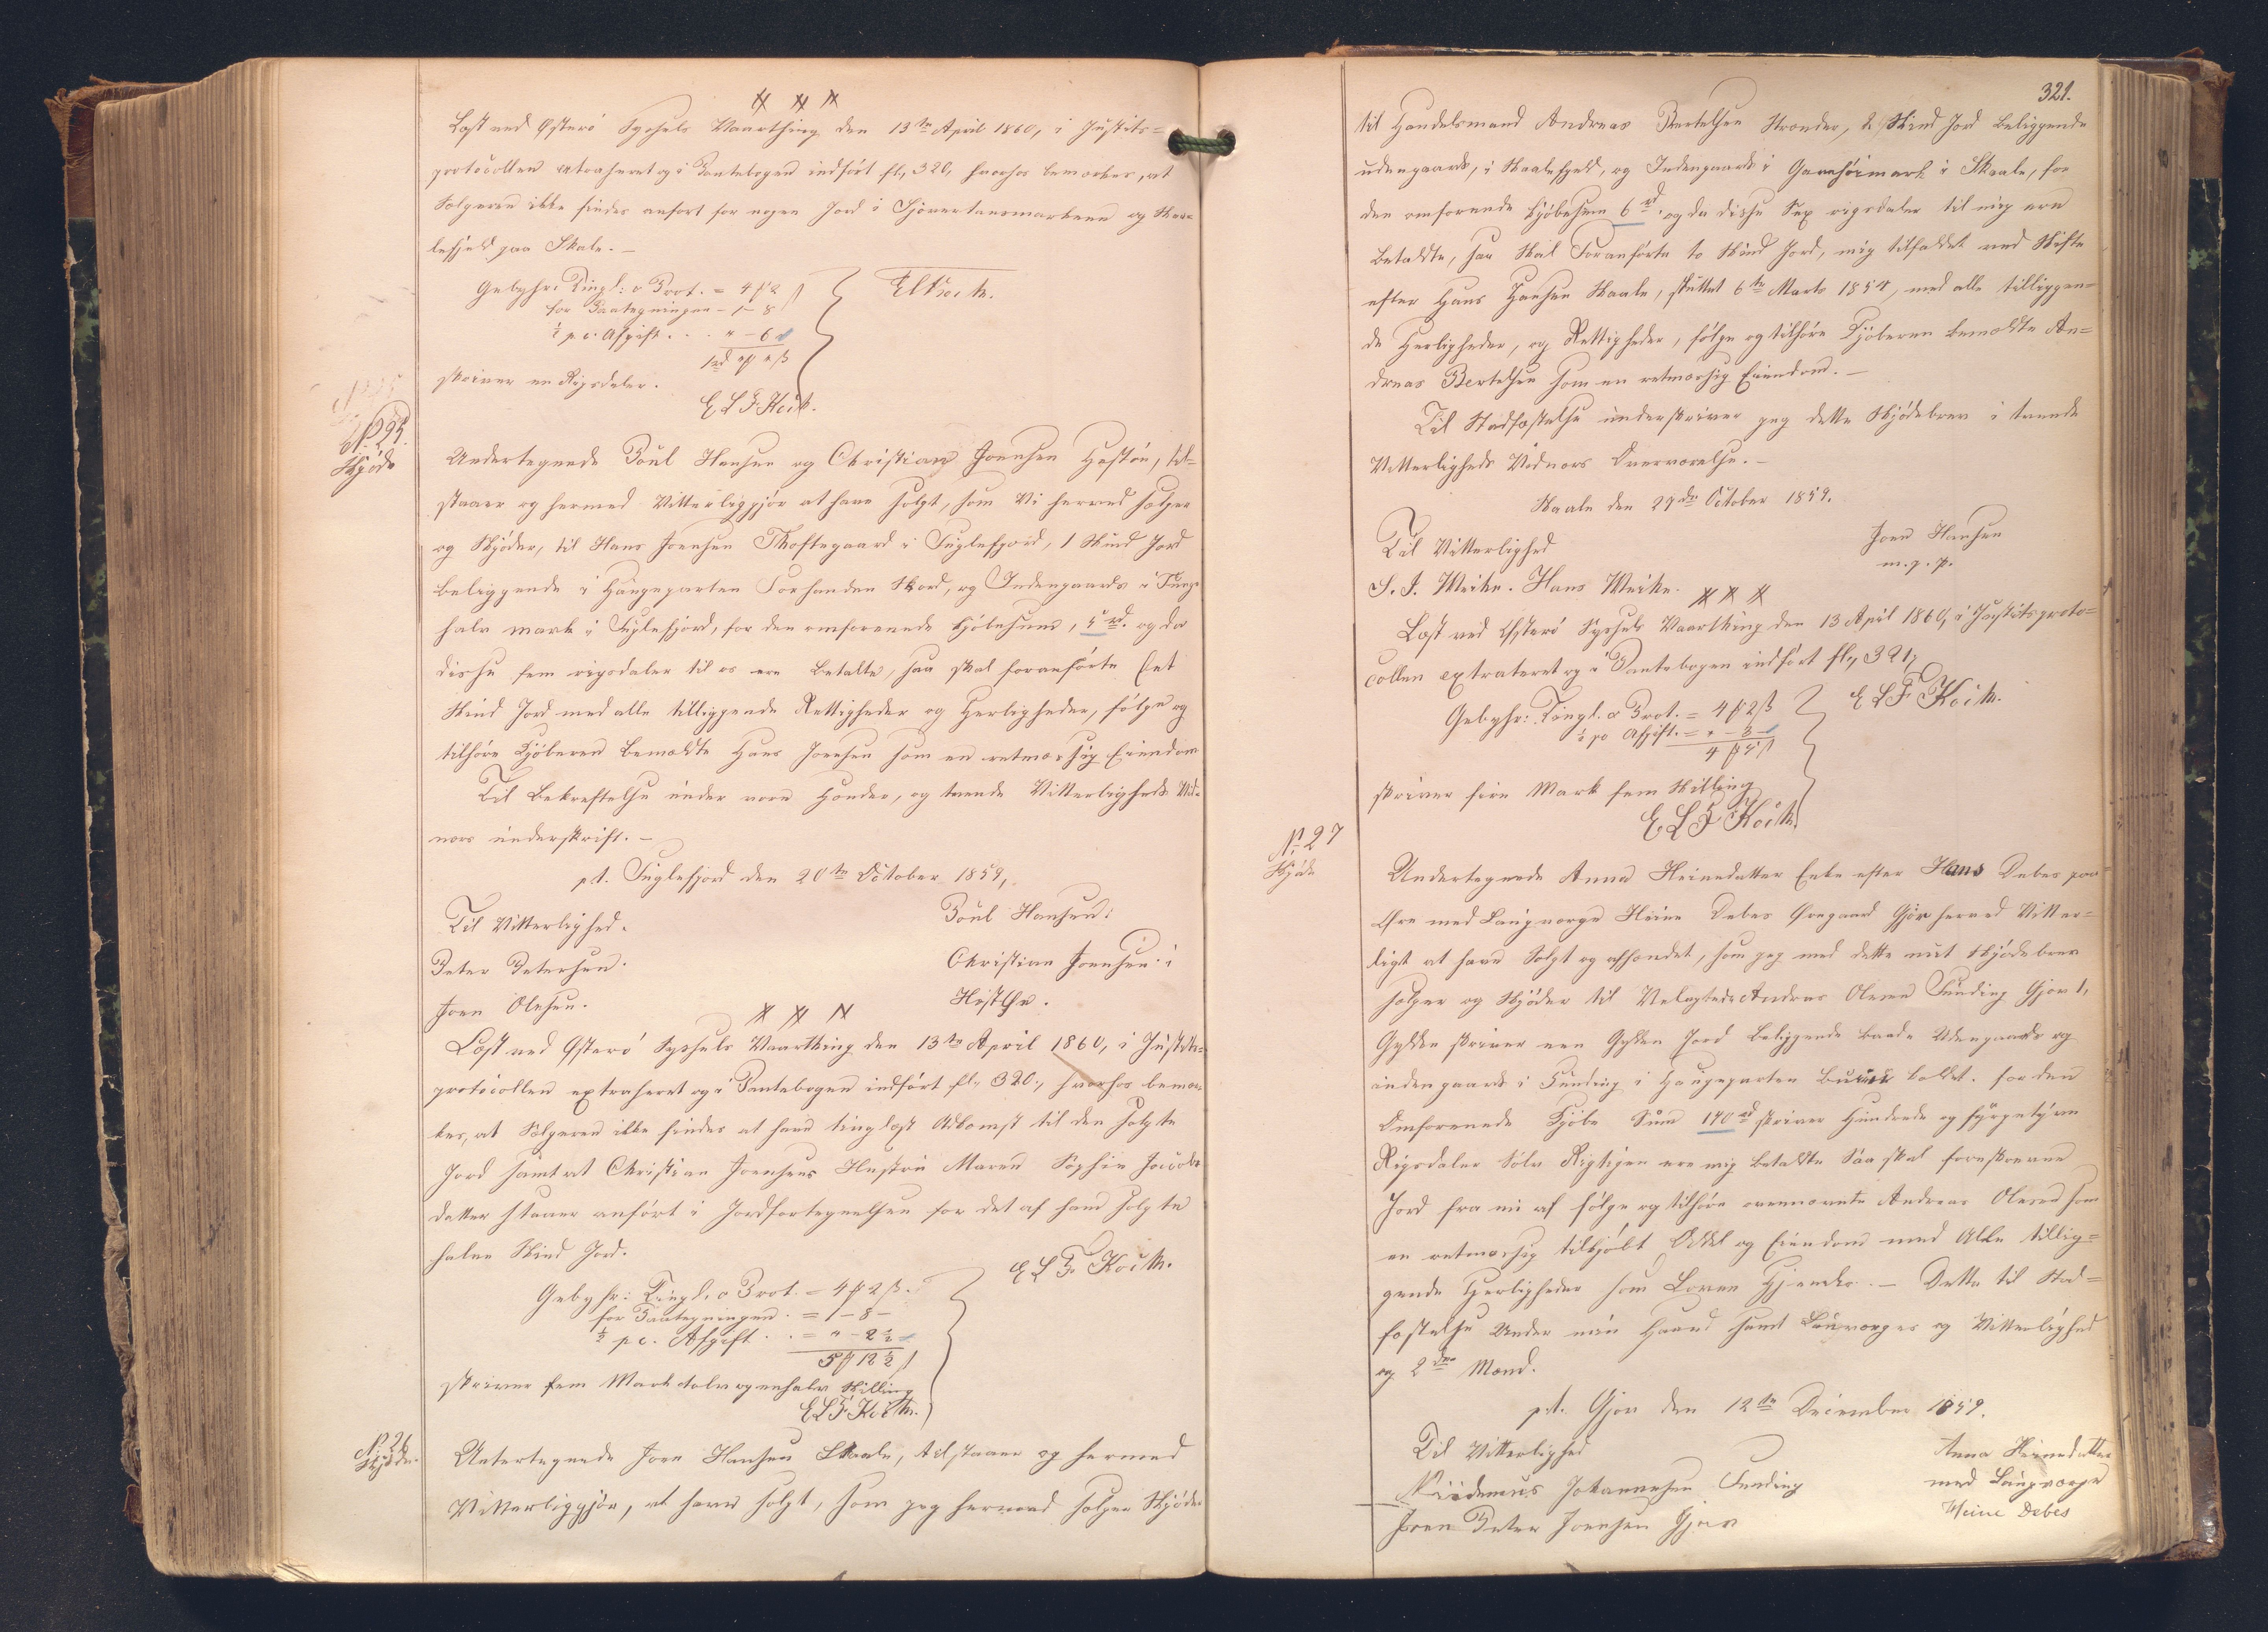 Læst ved Østerø Syssels Vaarthing den 13te April 1860, i Justits=
protocollen extraheret og i Pantebogen indført fl, 320, hvorhos bemærkes, at
Sælgeren ikke findes anført for nogen Jord i og Skaa=
lefjeld paa Skale. –
Gebyhr: Tingl: o Prot. = 4 ƒ 2 ß
for Paategningen – 1 – 8
½ p c. Afgift . . . " – 6
1 rd " ƒ " ß
skriver en Rigsdaler.
E L F Koch.
ELKoch.
No 25.
Skjøde
Undertegnede Poul Hansen og Christian Joensen Høstøe, til=
staaer og hermed Vitterliggjør at have solgt, som Vi herved sælger
og Skjøder, til Hans Joensen Thoftegaard i Fuglefjord, 1 Skind Jord
beliggende i Haugeparten Forhanden Skord, og Indengaards i Tunge
halv Mark i Fuglefjord, for den omforenede Kjøbesum, 5 rd. og da
disse fem rigsdaler til os ere betalte, saa skal foranførte Eet
Skind Jord med alle tilliggende Rettigheder og Herligheder, følge og
tilhøre Kjøberen bemældte Hans Joensen som en retmæssig Eiendom
Til Bekræftelse under vore Hænder, og tvende Vitterligheds Vid=
ners underskrift. –
p.t. Fuglefjord den 20te October 1859,
Til Vitterlighed.
Poul Hansen:
Peter Petersen.
Christian Joensen i
Joen Olesen.
Høstøe.
Læst ved Østerø Syssels Vaarthing den 13te April 1860, i Justits=
protocollen extraheret og i Pantebogen indført fl, 320, hvorhos bemær=
kes, at Sælgeren ikke findes at have tinglæst Adkomst til den solgte
Jord samt at Christian Joensens Hustrue Maren Sophie Jacobs
datter staaer anført i Jordfortegnelsen for det af ham solgte
halve Skind Jord.
Gebyhr: Tingl. o Prot. = 4 ƒ 2 ß.
for Paategningen. = 1 – 8 –
½ p c. Afgift . . = " – 2½
5 ƒ 12½ ß
skriver fem Mark tolv og enhalv Skilling
E L F Koch.
E L F Koch.
No 26
Skjøde.
Untertegnede Joen Hansen Skaale, tilstaaer og hermed
Vitterliggjør, at have solgt, som jeg herved sælger Skjøder
321.
til Handelsmand Andreas Bertelsen Strender, 2 Skind Jord beliggende
udengaards, i Skaalefjeld, og Indengaards i Garnhøimark i Skaale, for
den omforende Kjøbesum 6 rd. og da disse Sex rigsdaler til mig ere
betaldte, saa skal Foranførte to Skind Jord, mig tilfaldet ved Skifte
efter Hans Hansen Skaale, sluttet 6te Marts 1854, med alle tilliggen=
de Herligheder, og Rettigheder, følge og tilhøre Kjøberen bemældte An=
dreas Bertelsen som en retmæssig Eiendom. –
Til Stadfæstelse underskriver jeg dette Skjødebrev i tvende
Vitterligheds Vidners Overværelse. –
Skaale den 29de October 1859.
Til Vitterlighed
Joen Hansen
m. p. p.
S. J. Weihe. Hans Weihe.
Læst ved Østerø Syssels Vaarthing den 13 April 1860, i Justitsproto=
collen extraheret og i Pantebogen indført fl, 321,
Gebyhr: Tingl. o Prot. = 4 ƒ 2 ß
½ pc Afgift. = " – 3 –
4 ƒ 5 ß
E L F Koch.
skriver fire Mark fem Skilling
E L F Koch.
No 27
Skjøde
Undertegnede Anna Heinedatter Enke efter Hans Debes paa
Øre med Laugværge Heine Debes Øregaard Gjør herved Vitter=
ligt at have Solgt og afhændet, som jeg med dette mit Skjødebrev
sælger og Skjøder til Velagtede Andreas Olesen Funding Gjov 1,
Gylden skriver een Gylden Jord beliggende baade Udengaards og
indengaards i Funding i Haugeparten kaldet. for den
Omforenede Kjøbe Sum 140 rd skriver Hundrede og fyrgetyve
Rigsdaler Sølv Rigtigen ere mig betaldte Saa skal foreskrevne
Jord fra mi af følge og tilhøre ovennævnte Andreas Olesen som
en retmæssig tilkjøbt Odel og Eiendom med Alle tillig=
gende Herligheder som Loven Hjemler. – Dette til Stad=
fæstelse Under min Haand samt Lauværges og Vitterlighed
og 2de Mænd.
p.t. Gjov den 12te December 1859.
Til Vitterlighed
Anna Heinedatter
Niidemus Johannesen Funding
med Laugværge
Joen Peter Joensen Gjov
Heine Debes